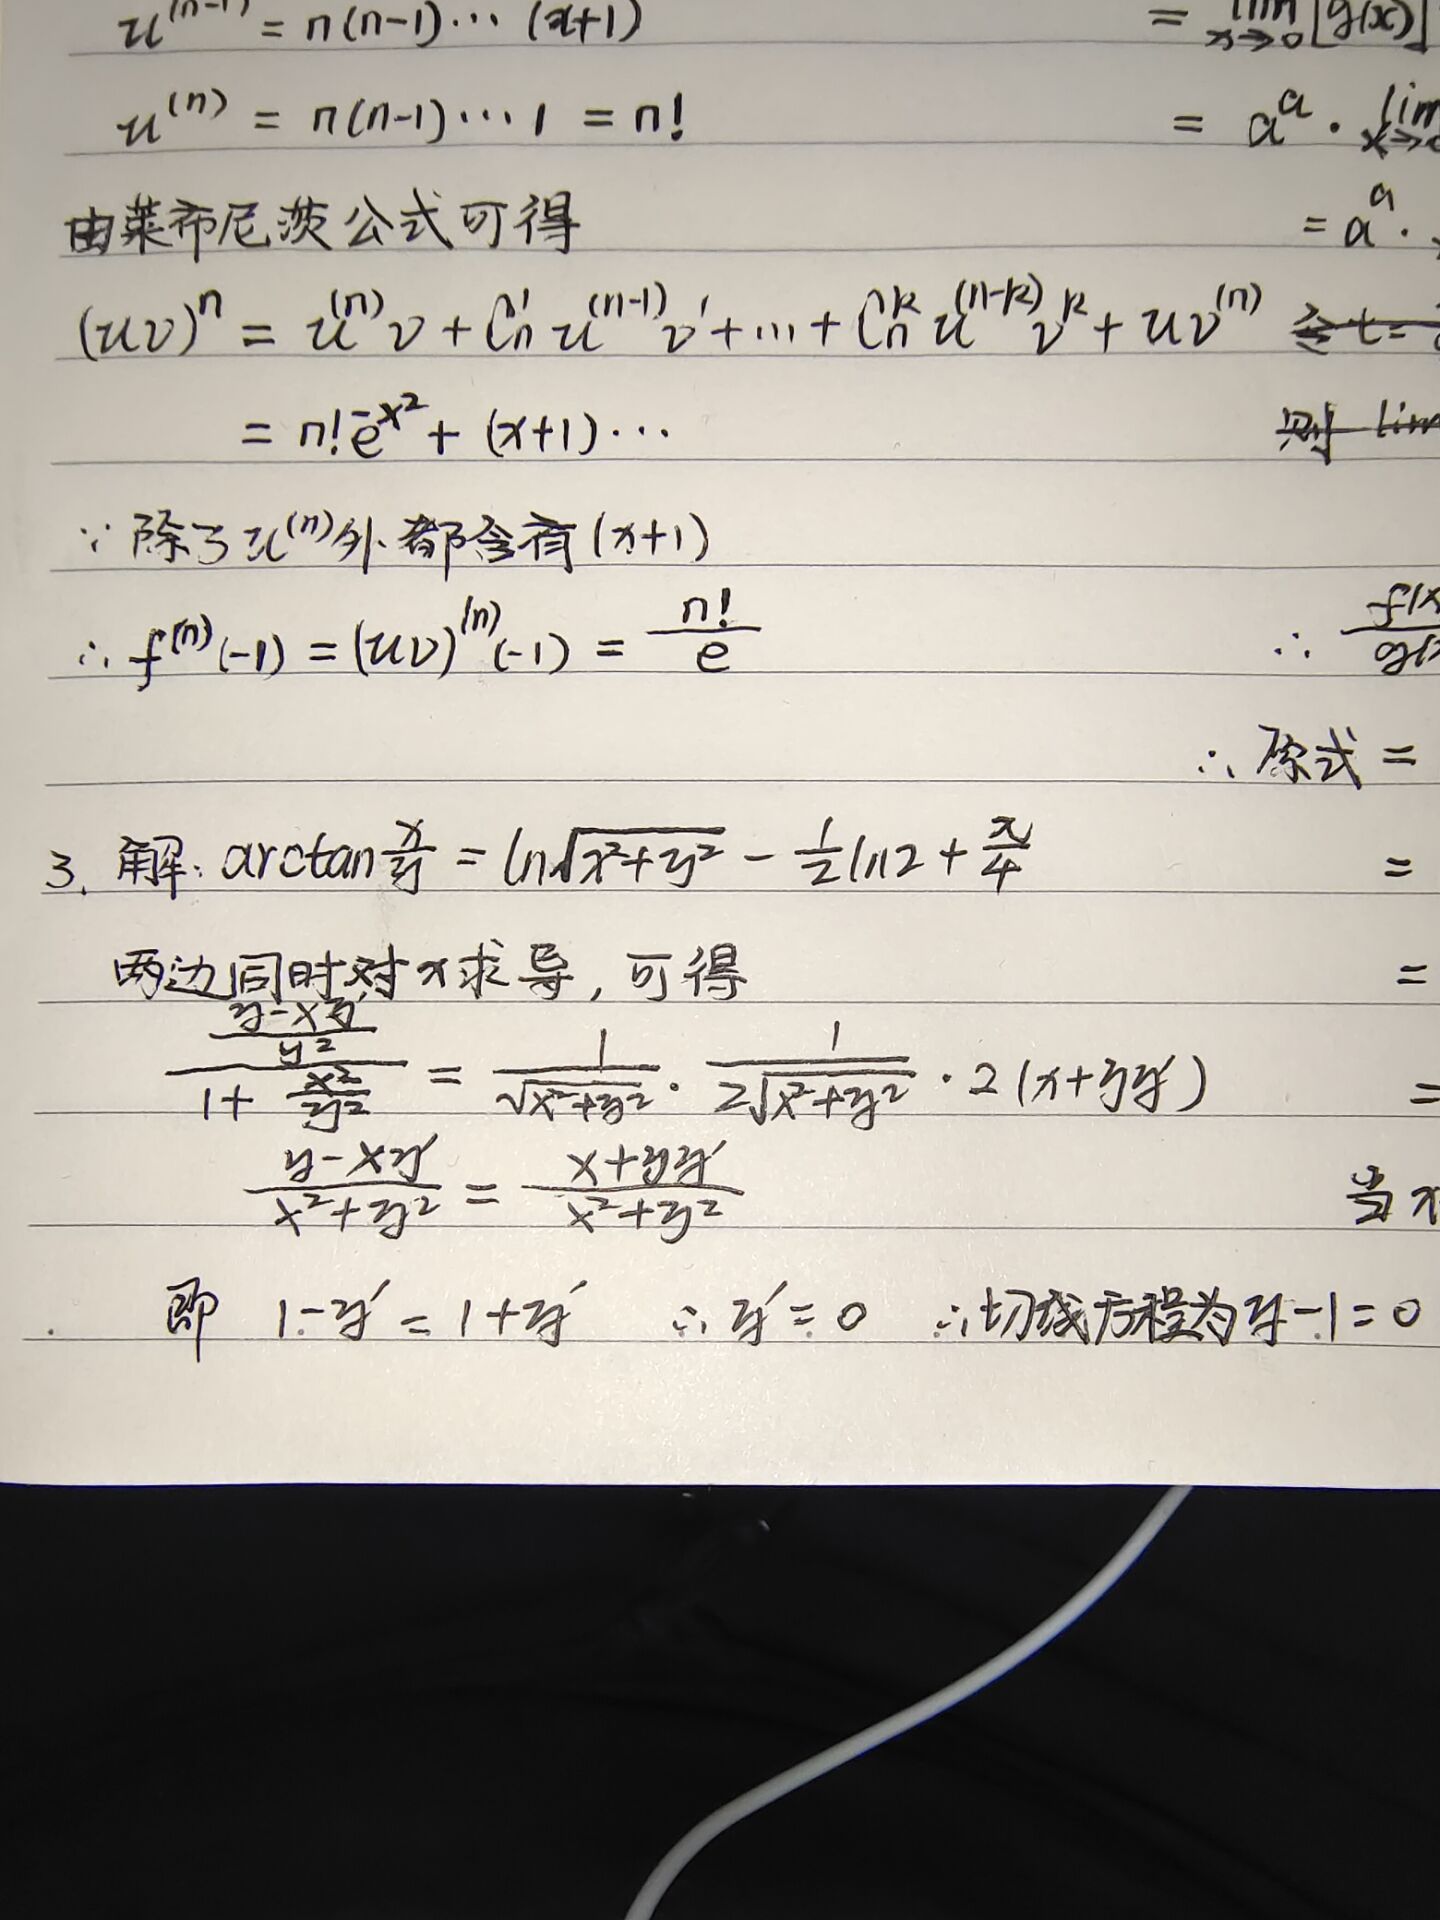 u^(n-1) = n(n-1)··· (x+1)
u^(n) = n(n-1)···1 = n!
由莱布尼茨公式可得
(uv)^n = u^(n)v + C_n^1 u^(n-1)v' + … + C_n^k u^(n-k)v^k + uv^(n)
= n!e^-x^2 + (x+1)···
∵除了u^(n)外都含有(x+1)
∴f^(n)(-1) = (uv)^(n)(-1) = n!/e
3. 解: arctan x/y = ln√(x²+y²) - 1/2 ln2 + π/4
两边同时对x求导, 可得
((y-xy')/y²)/(1+x²/y²) = 1/√(x²+y²) · 1/(2√(x²+y²)) · 2(x+yy')
(y-xy')/(x²+y²) = (x+yy')/(x²+y²)
即 1-y' = 1+y' ∴y'=0 ∴切线方程为y-1=0
= lim x→0 [g(x)]
= a^a · lim x→0
= a^a ·
令t=
则 lim
∴
∴原式 =
=
=
=
当x